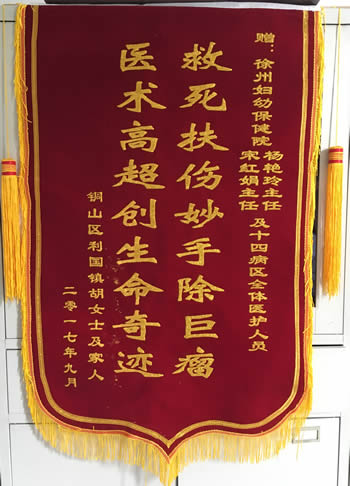 赠：徐州妇幼保健院
杨艳玲主任
宋红娟主任
及十四病区全体医护人员
救死扶伤妙手除巨瘤
医术高超创生命奇迹
铜山区利国镇胡女士及家人
二零一七年九月